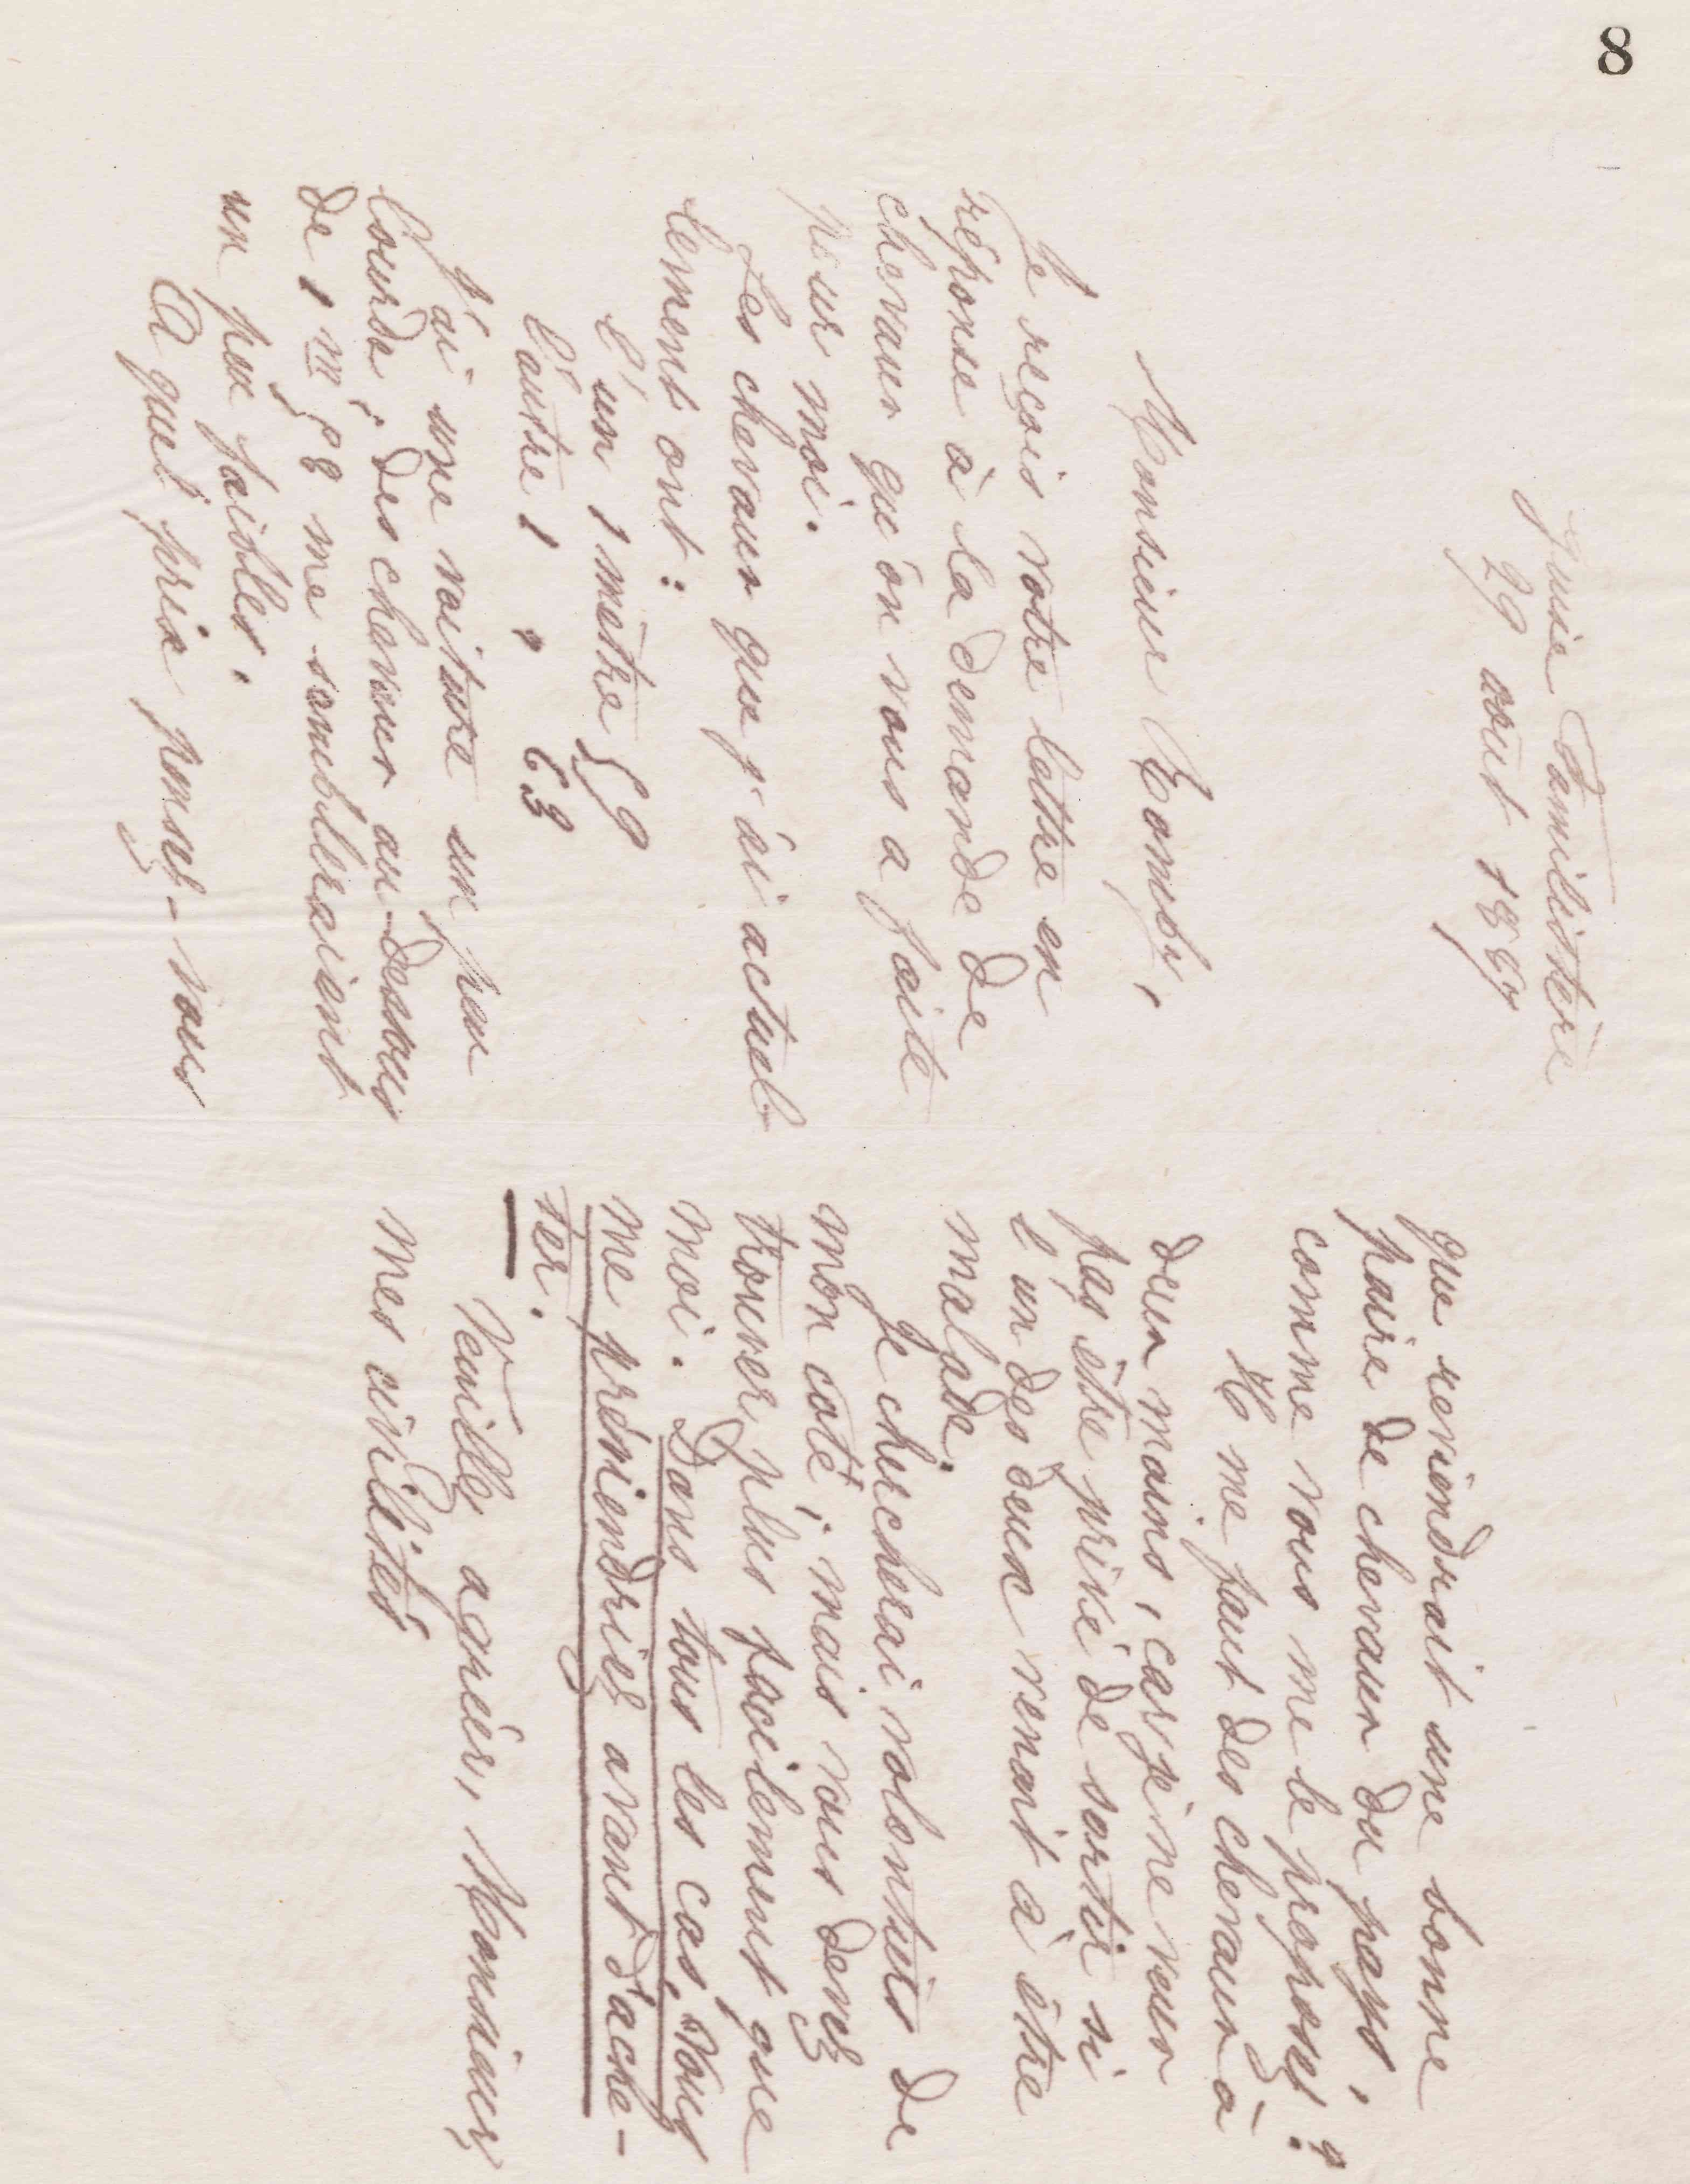 8
Guise Familistère
29 août 1889
Monsieur Romby,
Je reçois votre lettre en
réponse à la demande de
chevaux qu'on vous a faite
pour moi.
Les chevaux que j'ai actuel-
lement ont :
l'un 1 mètre 59
l'autre 1 " 63
J'ai une voiture un peu
lourde ; des chevaux au-dessous
de 1 m 58 me sembleraient
un peu faibles.
A quel prix pensez-vous
que reviendrait une bonne
paire de chevaux du pays,
comme vous me le proposez ?
Il me faut des chevaux à
deux mains, car je ne veux
pas être privé de sortir si
l'un des deux venait à être
malade.
Je chercherai volontiers de
mon coté ; mais vous devez
trouver plus facilement que
moi. Dans tous les cas, vous
me préviendriez avant d'ache-
ter.
Veuillez agréer, Monsieur
mes civilités